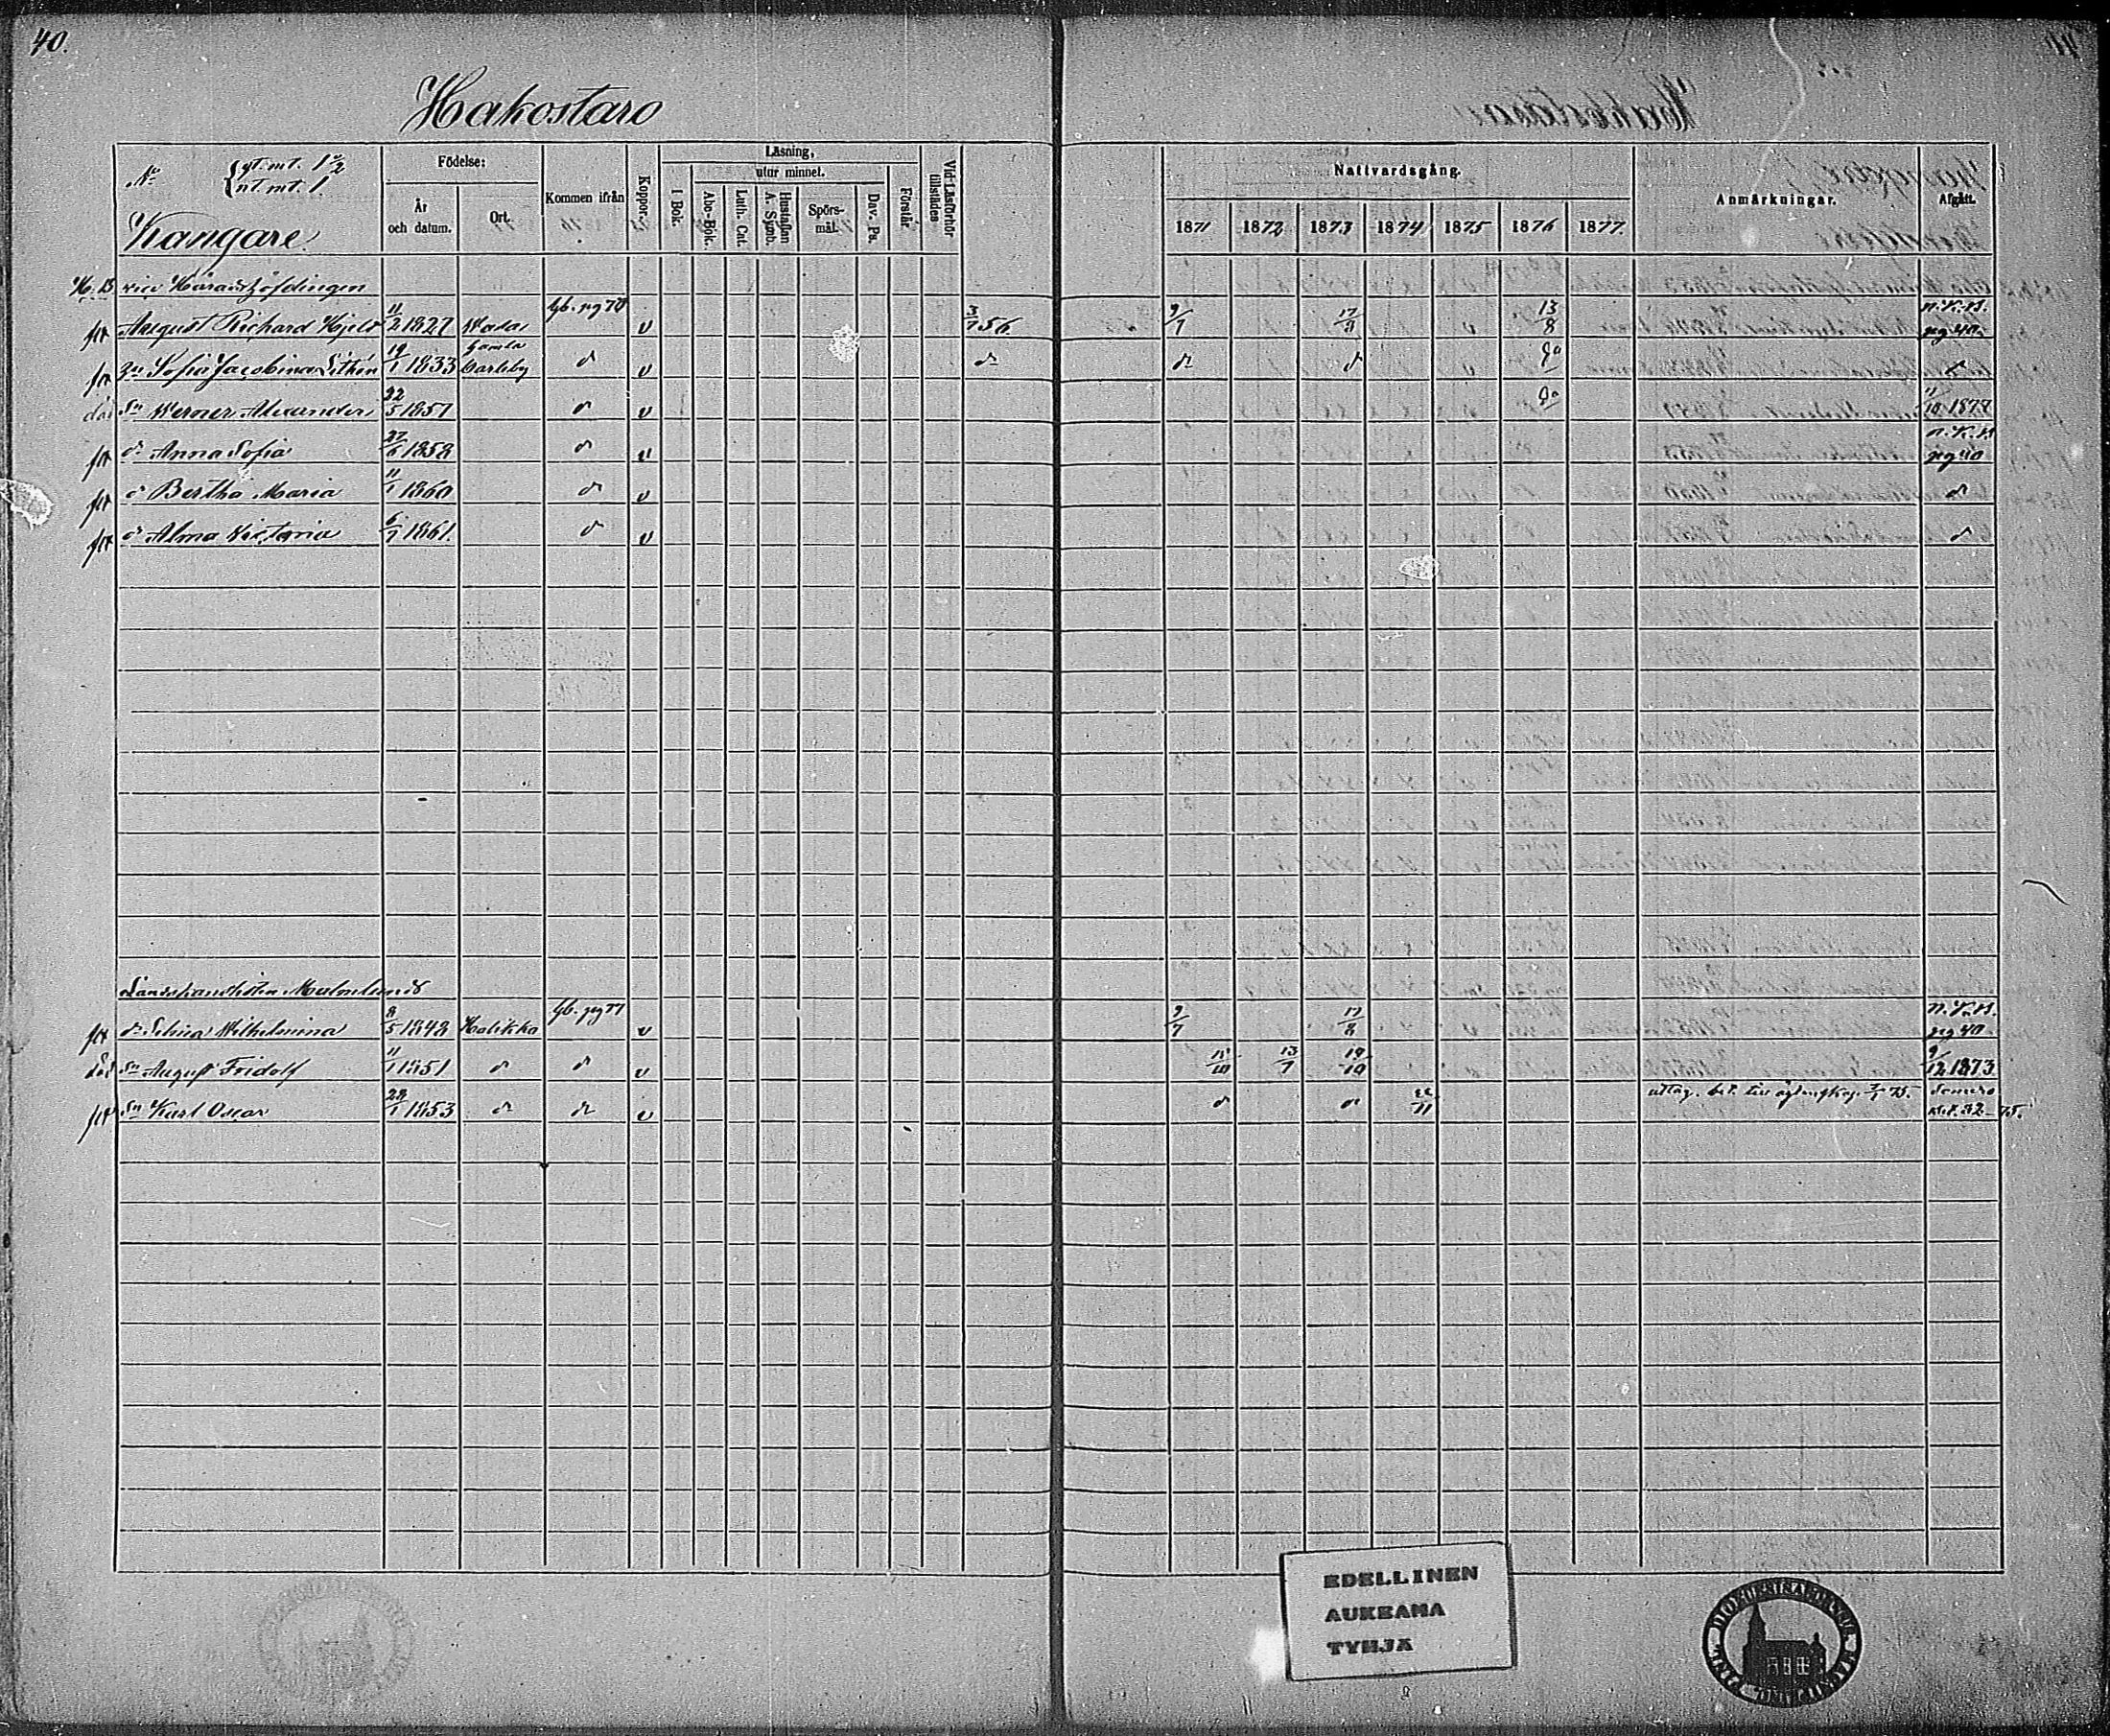 40.
Hakostaro
No gt. mt. 1 1/2
nt mt. 1
Kangare
Födelse:
År och datum.
Ort.
Kommen ifrån
Koppor.
Läsning,
utur minnet.
I Bok.
Abc-Bok.
Luth. Cat.
Hustaflan A. Symb.
Spörsmål.
Dav. Ps.
Förstår
Vid Läsförhör tillstädes
Nattvardsgång.
1871 1872 1873 1874 1875 1876 1877.
Anmärkningar.
Afgått.
vice Häradshöfdingen
August Richard Hjelt 11/2 1827 Wasa Gb. pg 78 v 3/7 56 9/7 17/8 13/8 n. K. B. pg 40
Sofia Jacobina Lithén 19/1 1833 Gamla Carleby d:o v d:o d:o d:o
Sn Werner Alexander 22/5 1857 d:o v 11/10 1877
d:r Anna Sofia 27/6 1858 d:o v n. K. B pg 40
d:o Bertha Maria 11/1 1860 d:o v d:o
d:o Alma Victoria 6/7 1861. d:o v d:o
Landskanslisten Malmlunds
d:r Selma Wilhelmina 8/5 1848 Halikko Gb. pg 77 v 9/7 17/8 n. K. B. pg 40
död Sn August Fridolf 11/1 1851 d:o d:o v 13/7 19/10 9/12 1873
Sn Karl Oscar 28/1 1853 d:o d:o v d:o d:o 22/11 uttag. bet. till 75. Somero 32-75.
EDELLINEN
AUKEAMA
TYHJÄ